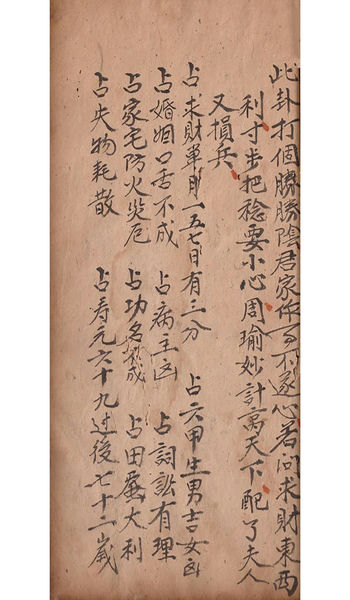 此卦打個勝勝陰君家作事不遂心若问求財東西
利寸步把稳要小心周瑜妙計高天下配了夫人
又損兵
占求財單月一五七日有三分 占六甲生男吉女凶
占婚姻口舌不成 占病主凶 占詞訟有理
占家宅防火災厄 占功名成 占田蚕大利
占失物耗散 占寿元六十九过後七十二歲